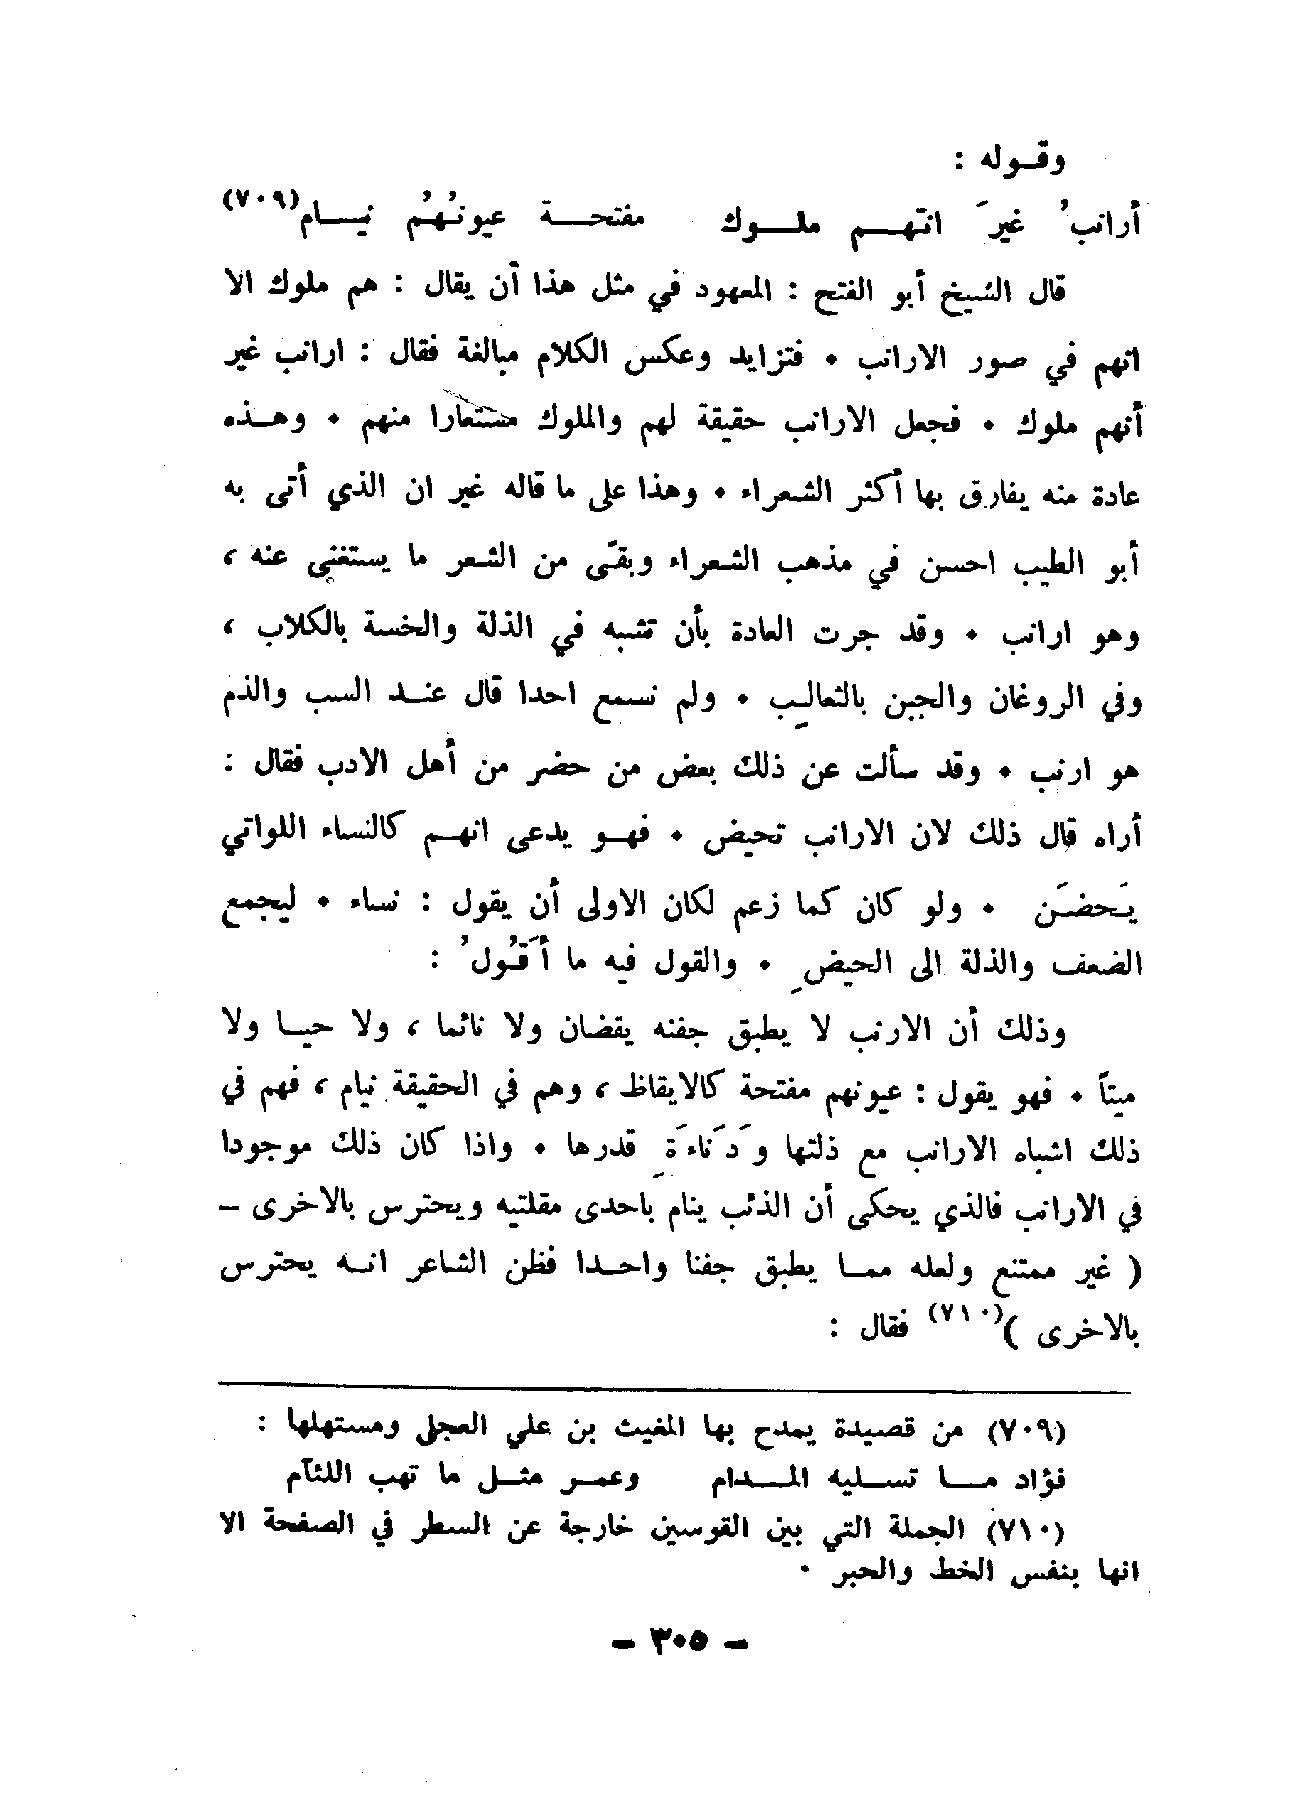 وقـوله :
أرانبُ غيرَ انّهـــم ملــــوك مفتحـــة عيونُهُم نيـــام(٧٠٩)
قال الشيخ أبو الفتح : المعهود في مثل هذا أن يقال : هم ملوك الا
انهم في صور الارانب ٠ فتزايد وعكس الكلام مبالغة فقال : ارانب غير
أنهم ملوك ٠ فجعل الارانب حقيقة لهم والملوك مستعارا منهم ٠ وهـذه
عادة منه يفارق بها أكثر الشعراء ٠ وهذا على ما قاله غير ان الذي أتى به
أبو الطيب احسن في مذهب الشعراء وبقّى من الشعر ما يستغنى عنه ،
وهو ارانب ٠ وقد جرت العادة بأن تشبه في الذلة والخسة بالكلاب ،
وفي الروغان والجبن بالثعالبِ ٠ ولم نسمع احدا قال عنـد السب والذم
هو ارنب ٠ وقد سألت عن ذلك بعض من حضر من أهل الادب فقال :
أراه قال ذلك لان الارانب تحيض ٠ فهـو يدعى انهـم كالنساء اللواتي
يَحضـَن ٠ ولو كان كما زعم لكان الاولى أن يقول : نساء ٠ ليجمع
الضعف والذلة الى الحيضِ ٠ والقول فيه ما أَقُولُ :
وذلك أن الارنب لا يطبق جفنه يقضان ولا نائما ، ولا حيـا ولا
ميتاً ٠ فهو يقول : عيونهم مفتحة كالايقاظ ، وهم في الحقيقة نيام ، فهم في
ذلك اشباه الارانب مع ذلتها وَدَناءَةِ قدرها ٠ واذا كان ذلك موجودا
في الارانب فالذي يحكى أن الذئب ينام باحدى مقلتيه ويحترس بالاخرى –
( غير ممتنع ولعله ممـا يطبق جفنا واحـدا فظن الشاعر انـه يحترس
بالاخرى )(٧١٠) فقال :
(٧٠٩) من قصيدة يمدح بها المغيث بن علي العجلي ومستهلها :
فؤاد مـــا تسـليه المـــدام وعمـر مثـــل ما تهب اللئآم
(٧١٠) الجملة التي بين القوسين خارجة عن السطر في الصفحة الا
انها بنفس الخط والحبر ٠
– ٣٠٥ –